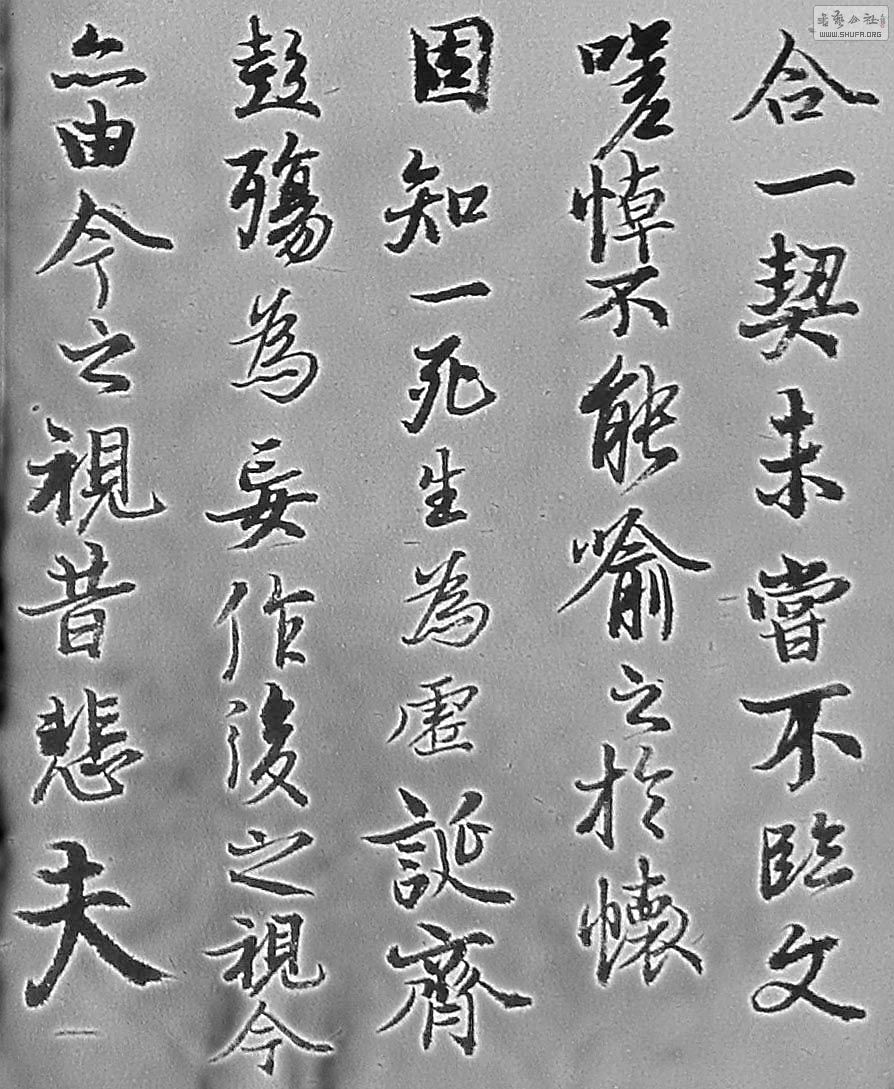 合一契未嘗不臨文
嗟悼不能喻之於懷
固知一死生為虛誕齊
彭殤為妄作後之視今
亦由今之視昔悲夫
書藝公社
WWW.SHUFA.ORG